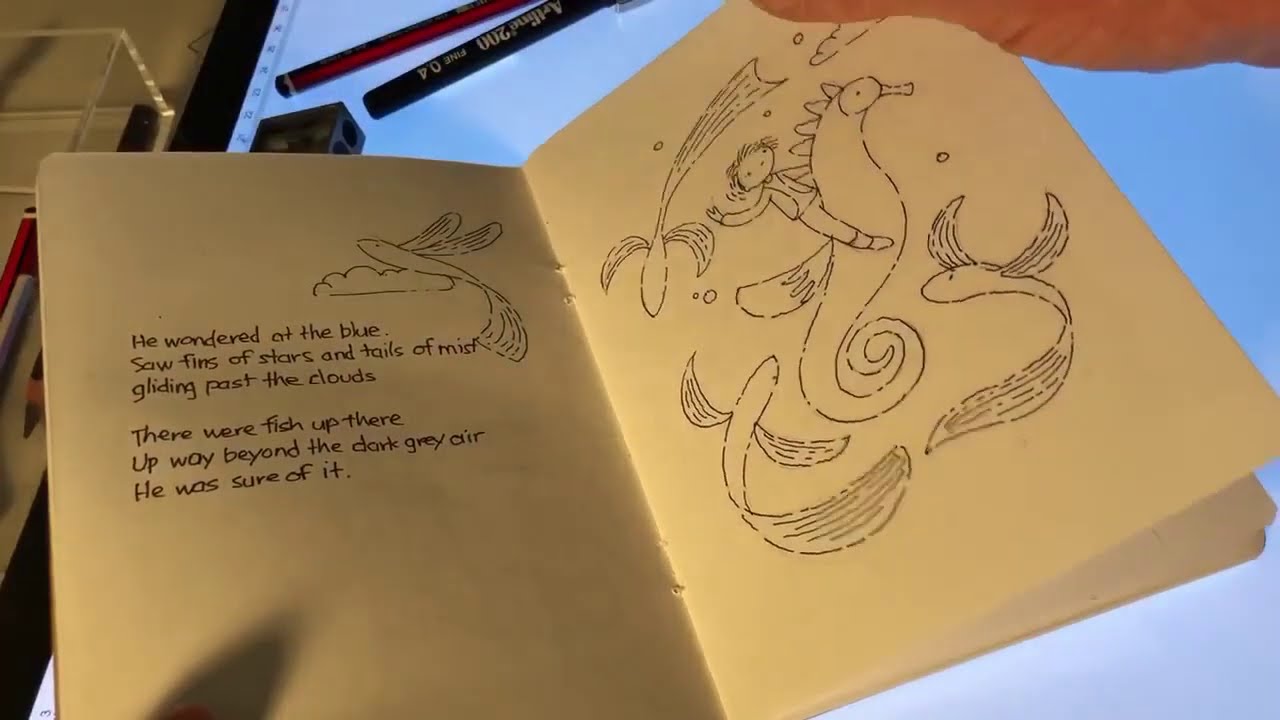 Artline 200
FINE 0.4
He wondered at the blue.
Saw fins of stars and tails of mist
gliding past the clouds
There were fish up there
Up way beyond the dark grey air
He was sure of it.